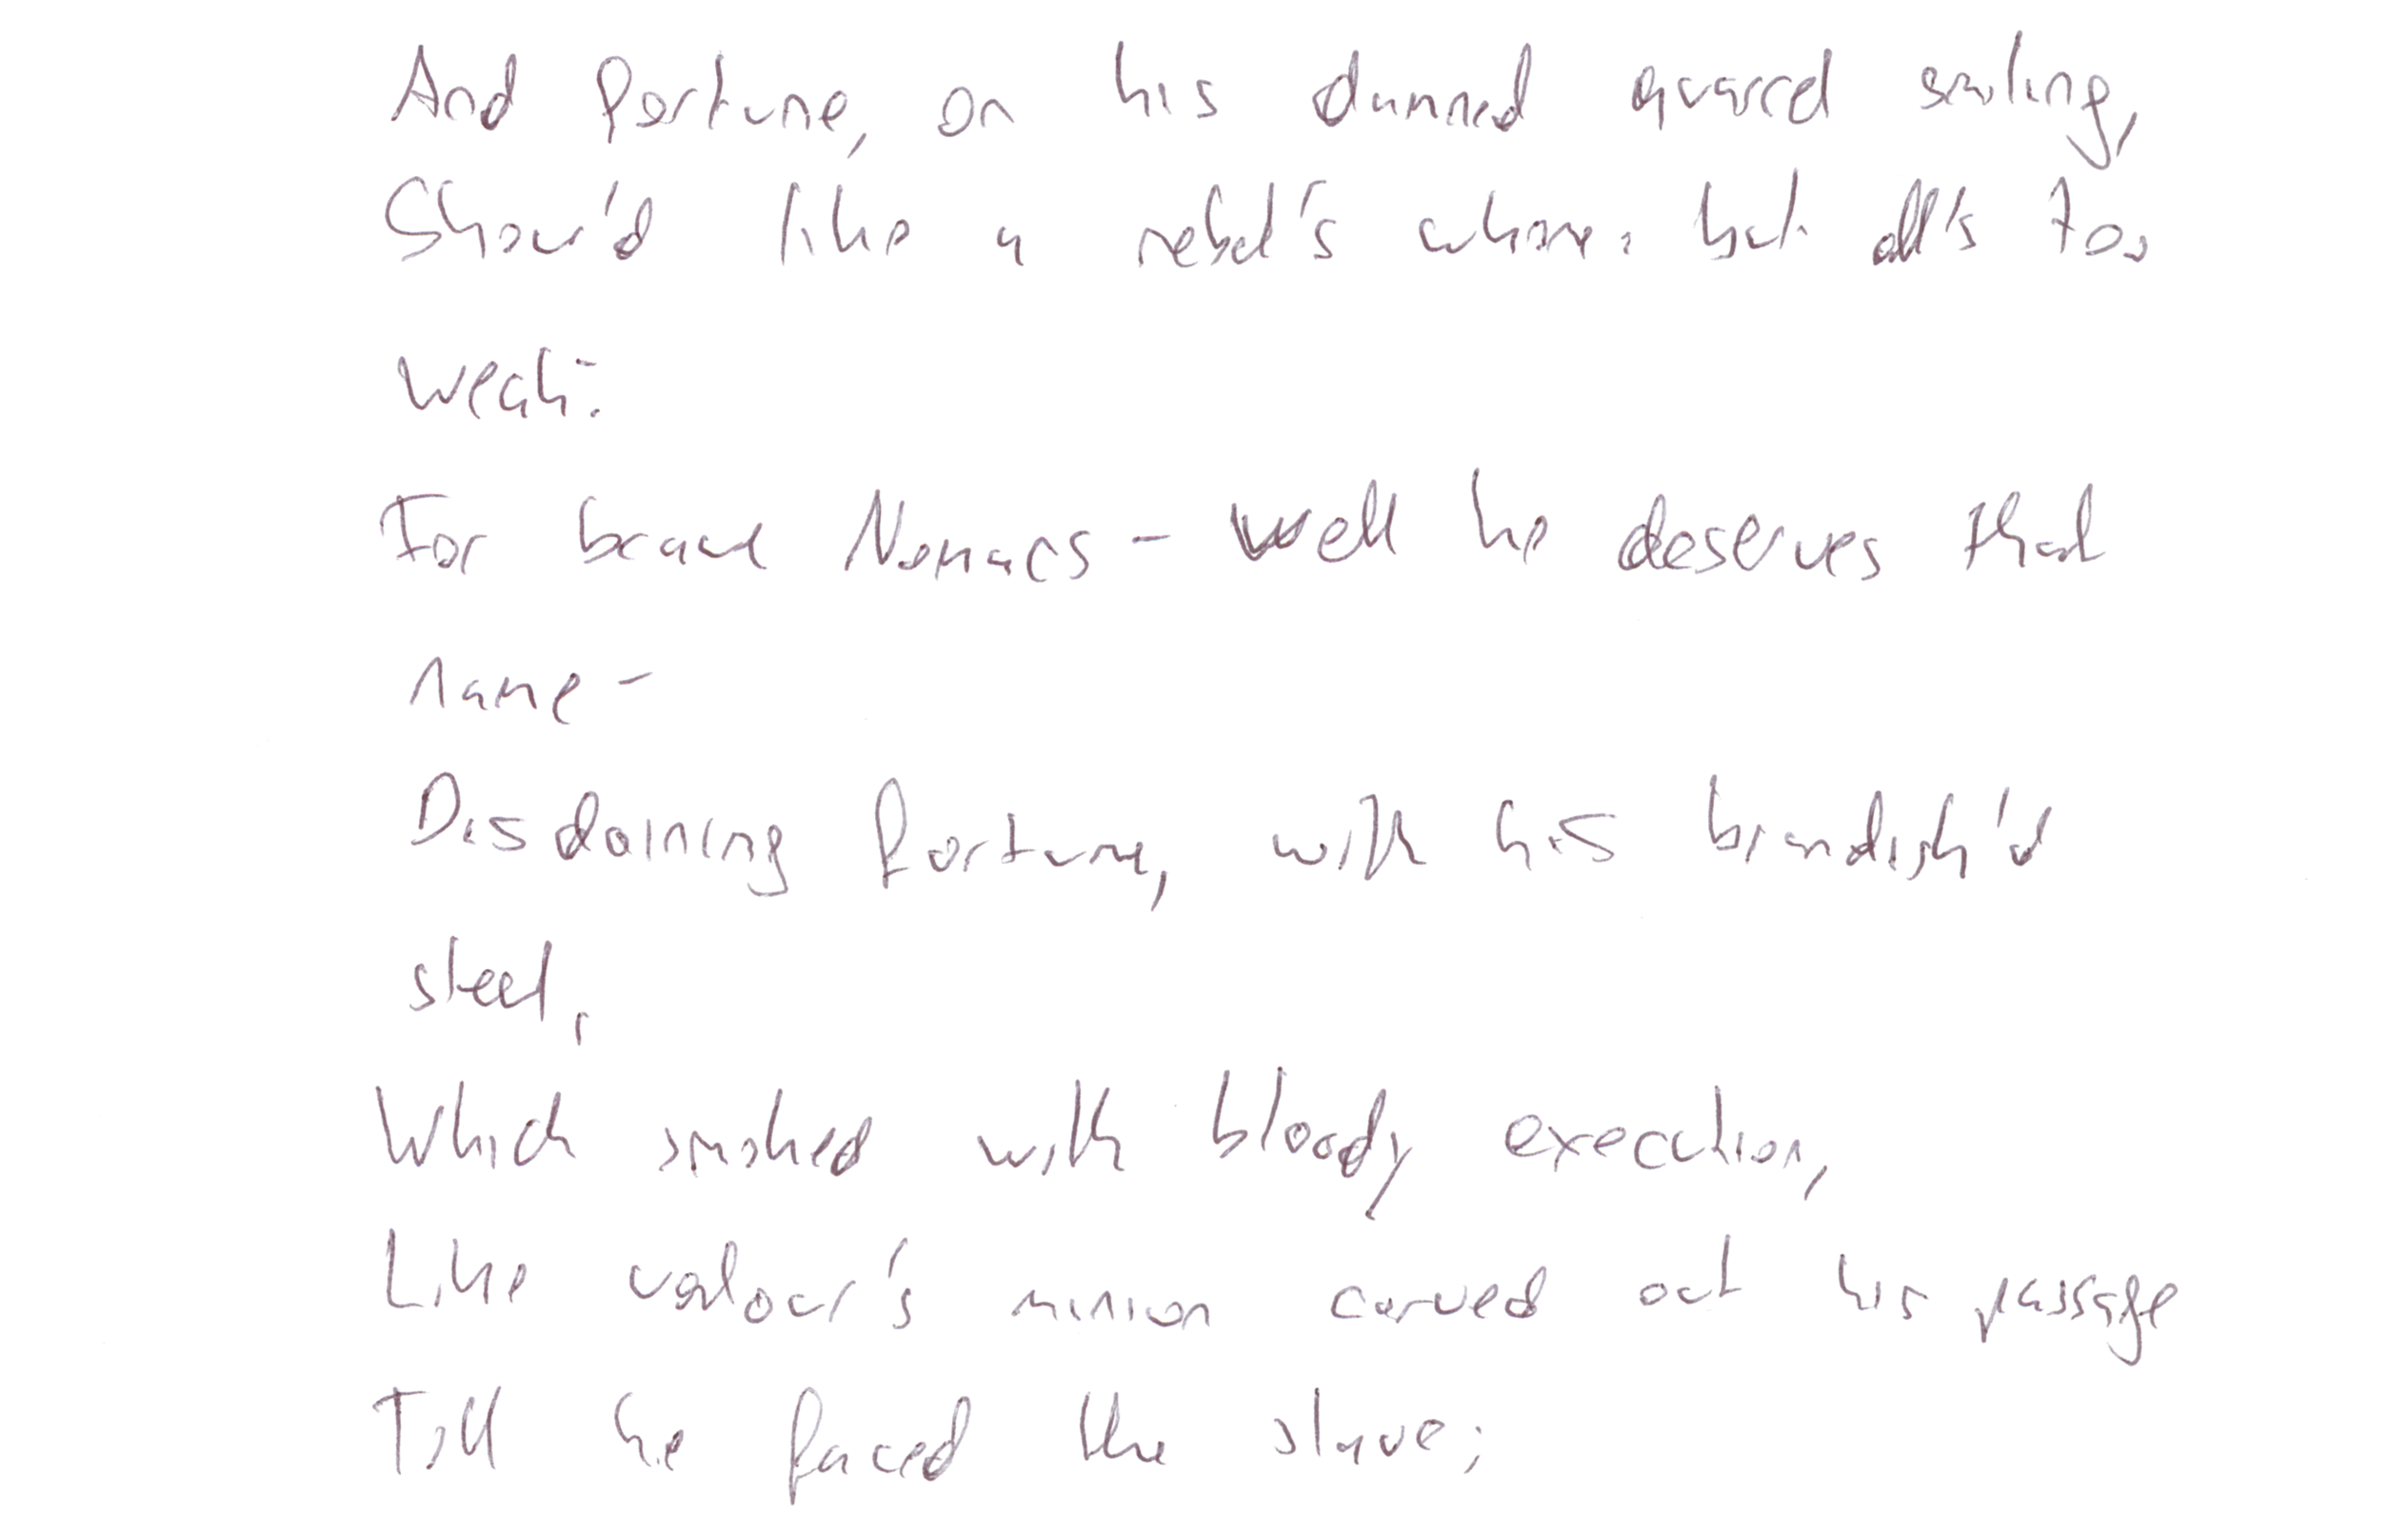 And fortune, on his damned quarrel smiling,
Show'd like a rebel's whore: but all's too
weak:
For brave Nomacs - well he deserves that
name -
Disdaining fortune, with his brandish'd
steel,
Which smoked with bloody execution,
Like valour's minion carved out his passage
Till he faced the slave;